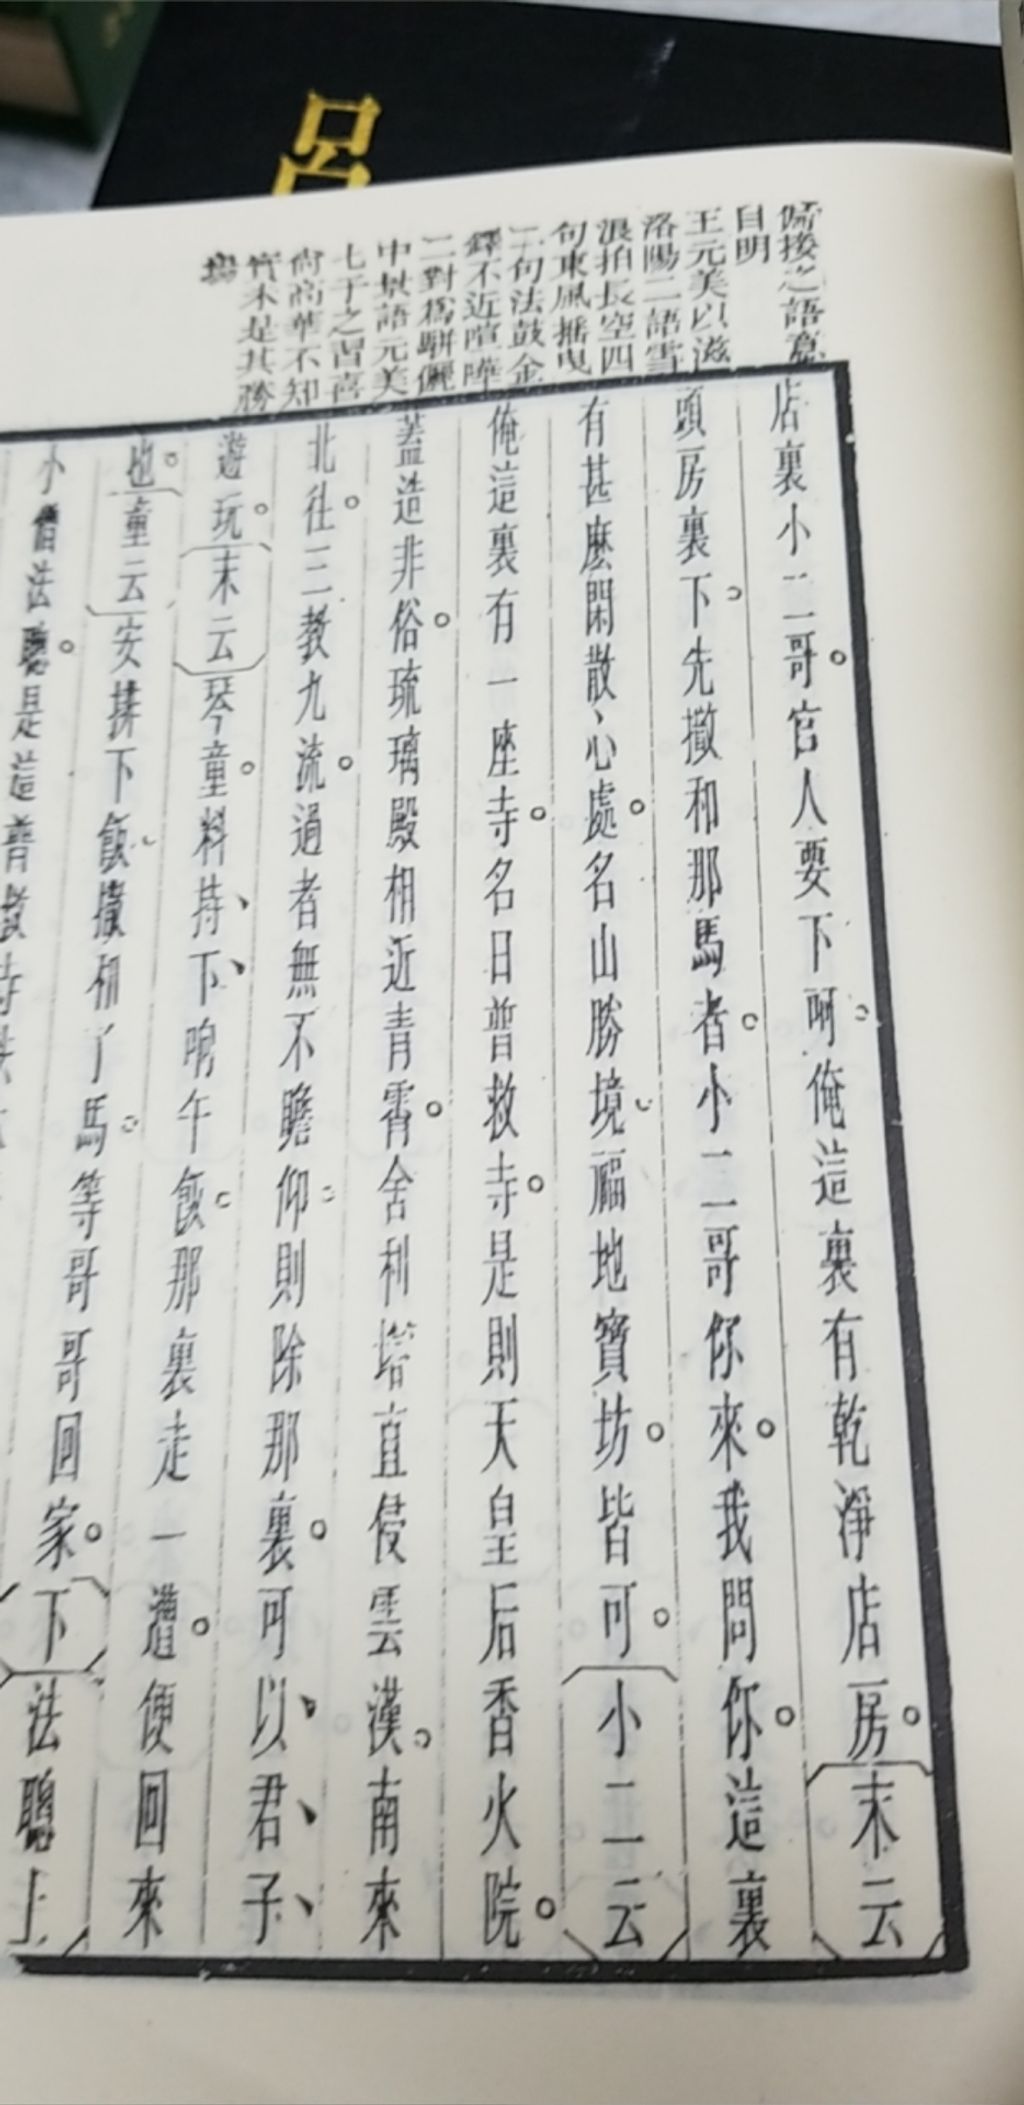 呂
俯接之語意
自明
王元美以滋
洛陽二語雪
浪拍長空四
句東風搖曳
二句法鼓金
鐸不近喧嘩
二對爲駢儷
中景語元美
七子之習喜
尚高華不知
實未是其勝
場
店裏小二哥官人要下呵俺這裏有乾淨店房末云
頭房裏下先撒和那馬者小二哥你來我問你這裏
有甚麽閑散心處名山勝境福地寶坊皆可小二云
俺這裏有一座寺名曰普救寺是則天皇后香火院
蓋造非俗琉璃殿相近青霄舍利塔直侵雲漢南來
北往三教九流過者無不瞻仰則除那裏可以君子
遊玩末云琴童料持下晌午飯那裏走一遭便回來
也童云安排下飯撒和了馬等哥哥回家下法聰上
小僧法聰是這普救寺法